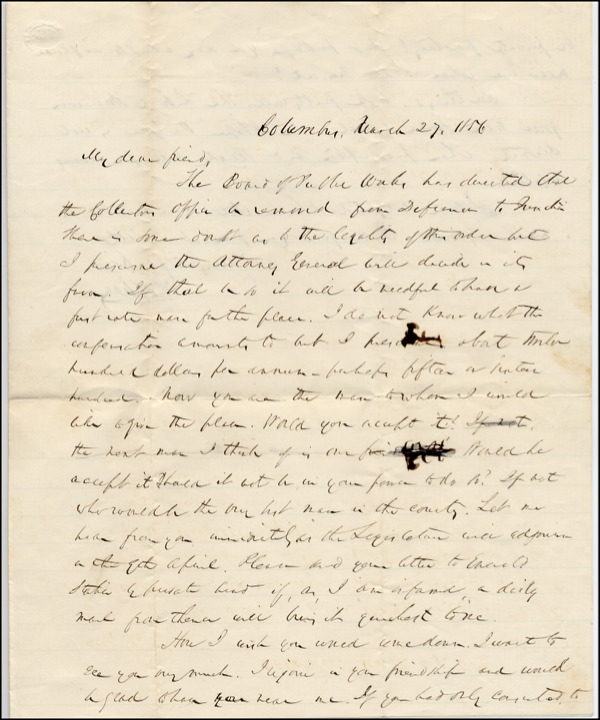 Columbus, March 27, 1856
My dear friend,
The Board of Public Works has directed that
the Collectors Office be removed from Defiance to Junction
There is some doubt as to the legality of this order but
I presume the Attorney General will decide in its
favor. If that be so it will be needful to have a
first rate man for the place. I do not know what the
compensation amounts to but I presume about twelve
hundred dollars per annum - perhaps fifteen or sixteen
hundred. Now you are the man to whom I would
like to give the place. Would you accept it? If not,
the next man I think of is our friend Would he
accept it? Would it not be in your power to do it? If not
who would be the very best man in the county. Let me
hear from you immediately as the Legislature will adjourn
on the 9th April. Please send your letter to Emerald
Station by private hand if, as I am informed, a daily
mail from thence will bring it quickest to me.
How I wish you would come down. I want to
see you very much. I rejoice in your friendship and would
be glad to have you near me. If you had only consented to